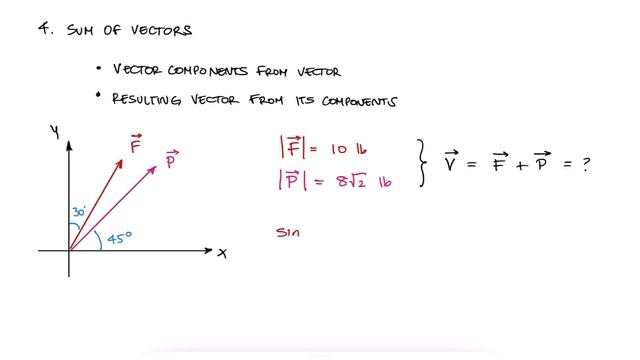 4. SUM OF VECTORS
• VECTOR COMPONENTS FROM VECTOR
• RESULTING VECTOR FROM ITS COMPONENTS
y
F⃗
P⃗
30°
45°
x
|F⃗| = 10 lb
|P⃗| = 8√2 lb
} V⃗ = F⃗ + P⃗ = ?
sin